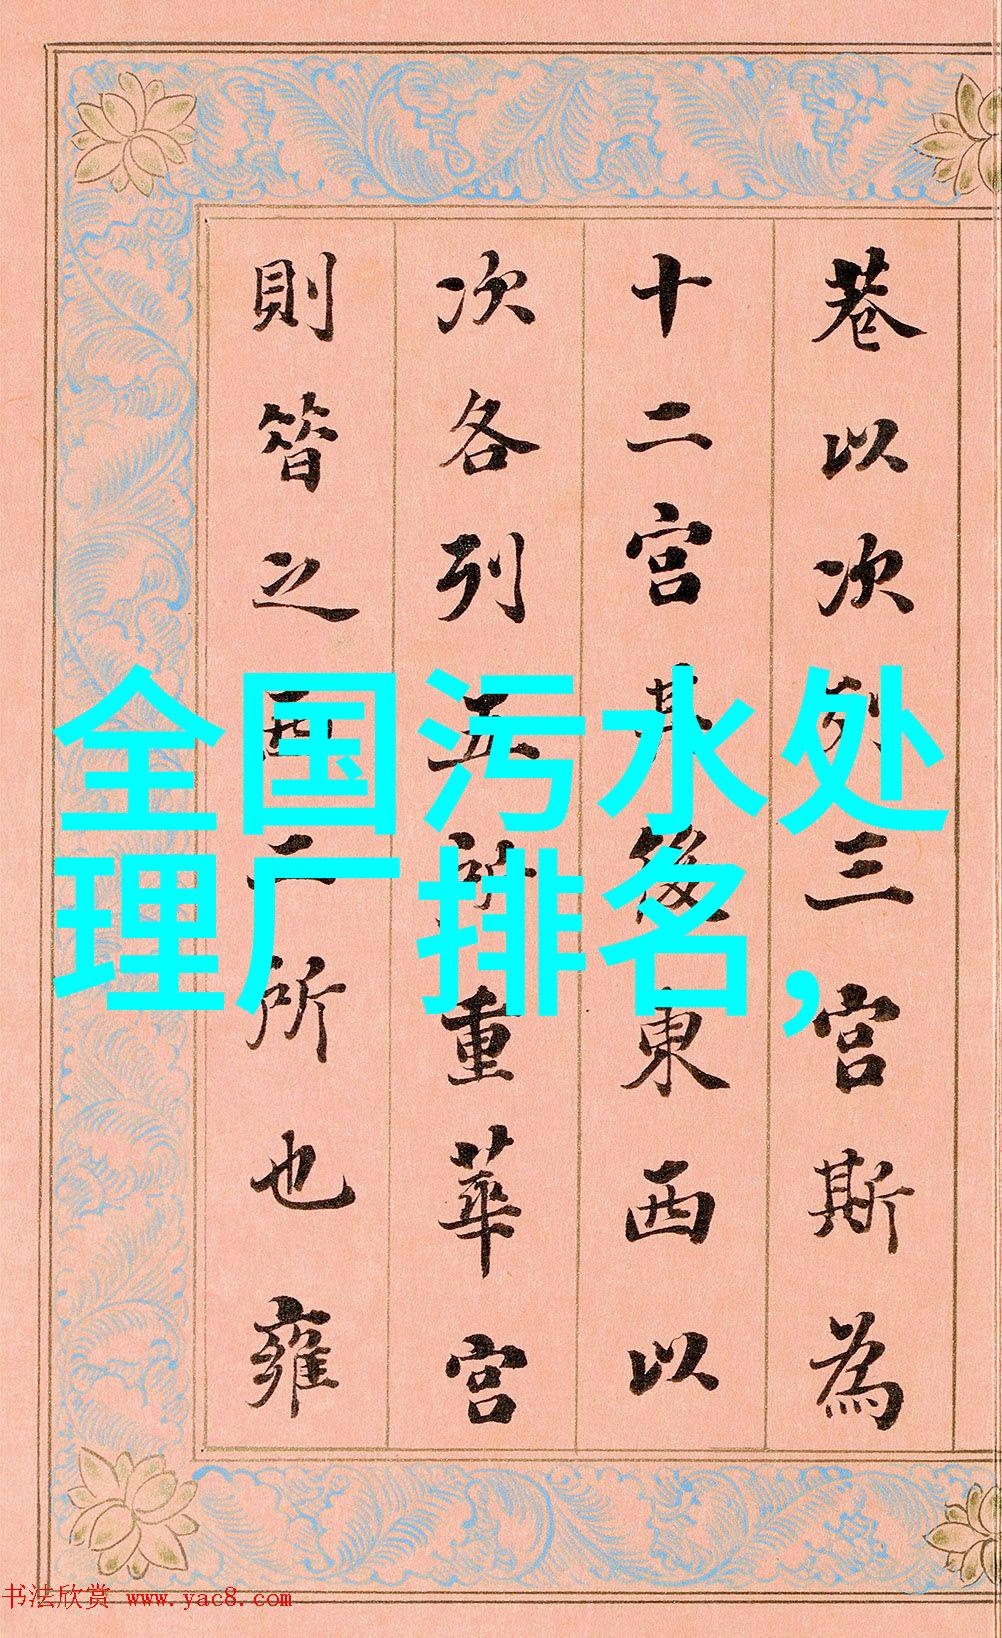 巷以次列三宫斯為
十二宫其後東西以
次各列五所重華宫
則皆之西二所也雍
全国污水处
理厂排名，
书法欣赏 www.yac8.com